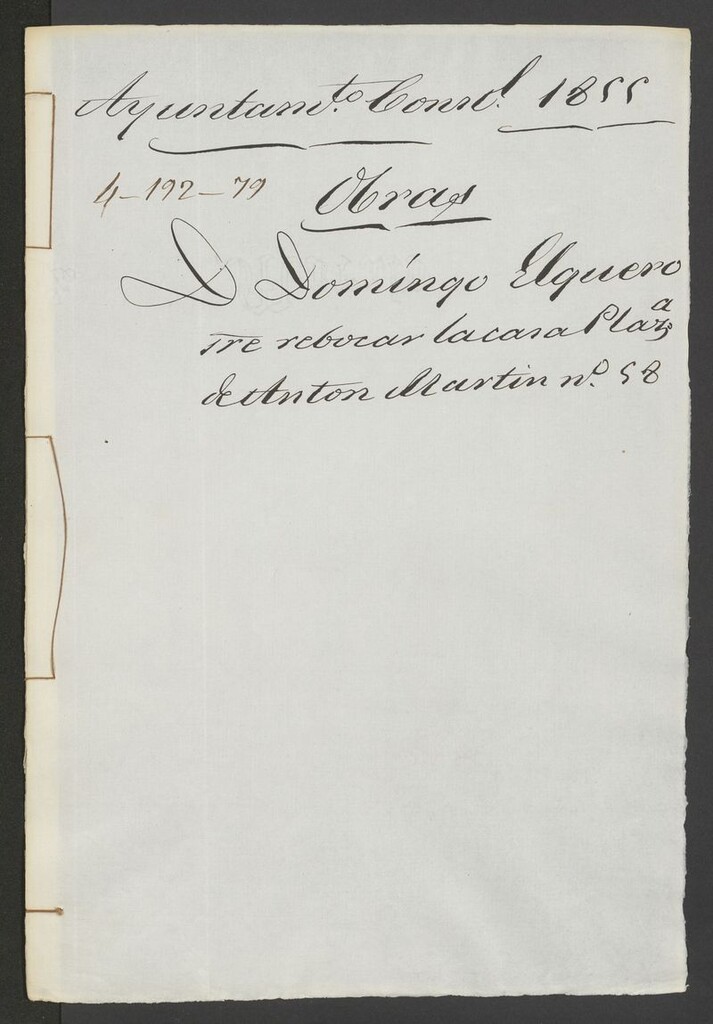 Ayuntam.to Const.l 1855
4-192-79
Obras
D Domingo Elguero
rre rebocar la casa Plaza
de Anton Martin n.o 58